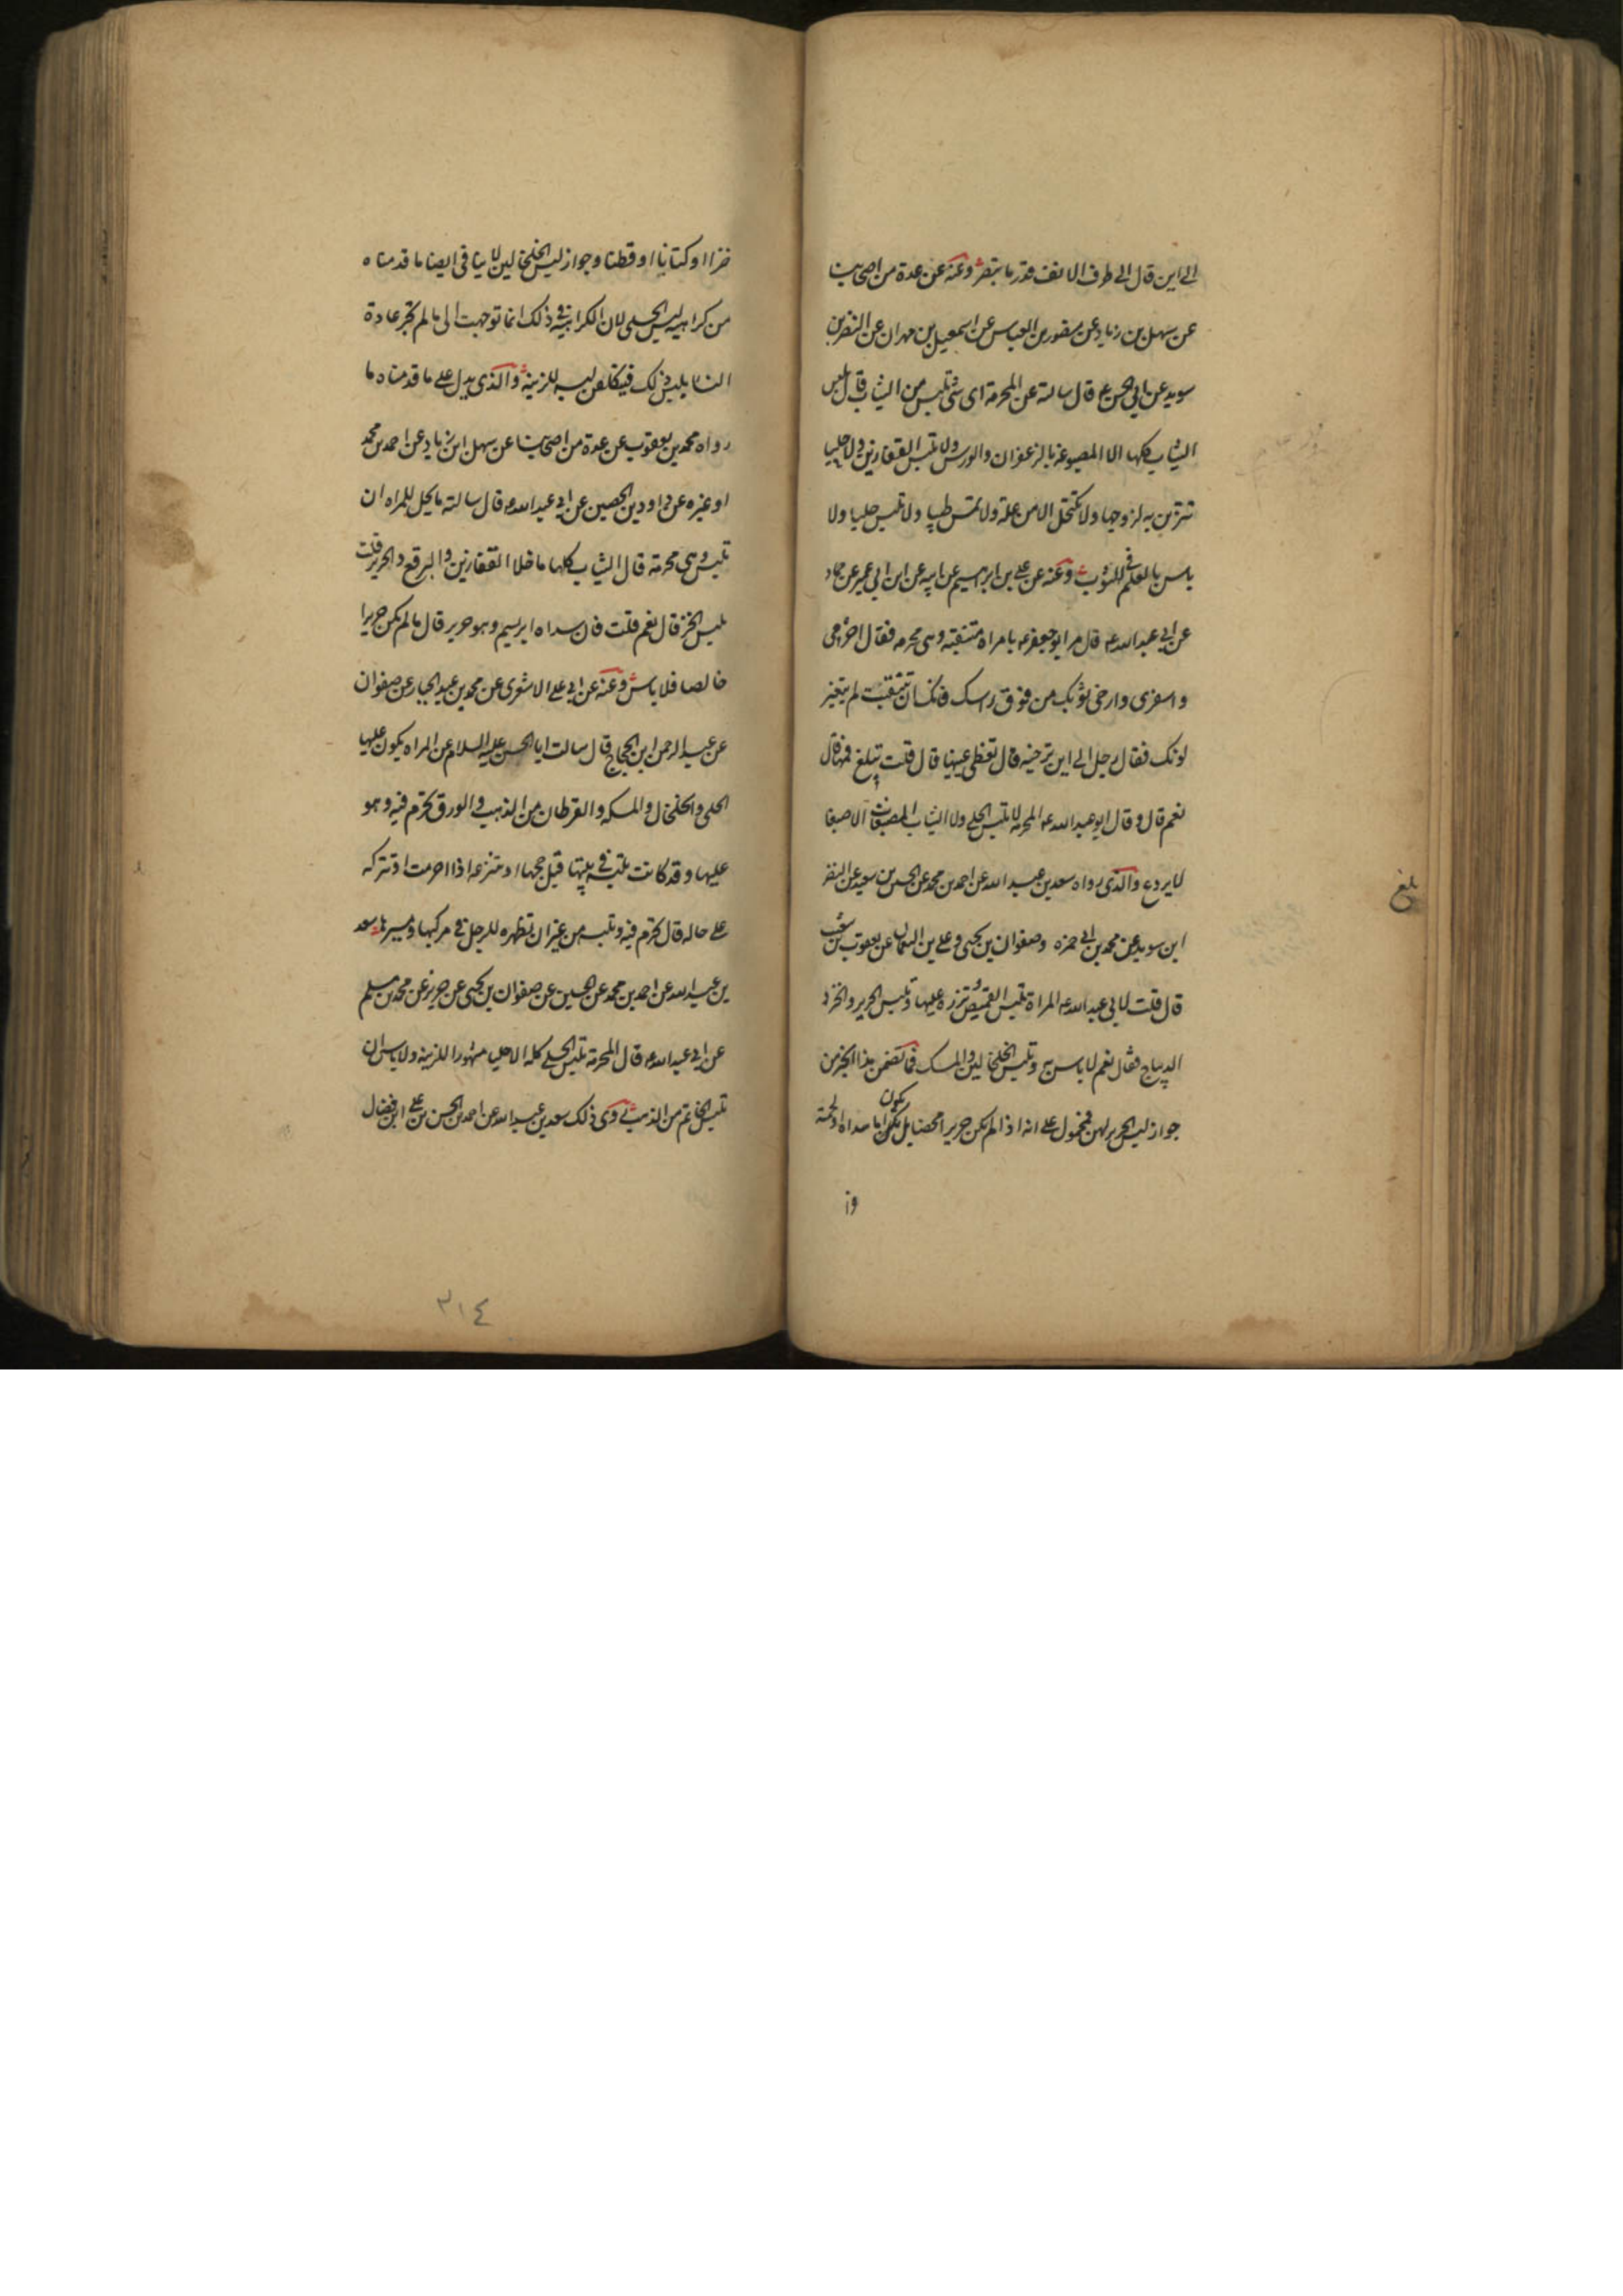 الى اين قال الى طرف الانف قدر ما تبصر وعنه عن عدة من اصحابنا
عن سهل بن زياد عن منصور بن العباس عن اسمعيل بن مهران عن النضر بن
سويد عن ابي الحسن ع قال سالته عن المحرمة اى شئ تلبس من الثياب قال تلبس
الثياب كلها الا المصبوغة بالزعفران والورس ولا تلبس القفازين ولا حليا
تتزين به لزوجها ولا تكتحل الا من علة ولا تمس طيبا ولا تلبس حليا ولا
باس بالعلم في الثوب وعنه عن علي بن ابرهيم عن ابيه عن ابن ابي عمير عن حماد
عن ابي عبدالله ع قال مر ابو جعفر ع بامراة متنقبة وهي محرمه فقال احرمى
واسفرى وارخى ثوبك من فوق راسك فانك ان تنقبت لم يتغير
لونك فقال رجل الى اين ترخيه قال تغطى عينيها قال قلت يبلغ فمها قال
نعم قال وقال ابو عبدالله ع المحرمة لا تلبس الحلى ولا الثياب المصبغات الا صبغا
لا يردع والذى رواه سعد بن عبدالله عن احمد بن محمد عن الحسين بن سعيد عن النضر
ابن سويد عن محمد بن ابي حمزه وصفوان بن يحيى وعلي بن النعمان عن يعقوب بن شعيب
قال قلت لابي عبدالله ع المراة تلبس القميص تزره عليها وتلبس الحرير والخز و
الديباج فقال نعم لا باس به وتلبس الخلخالين والمسك فما تضمن هذا الخبر من
جواز لبس الحرير لهن فمحمول على انه اذا لم يكن حريرا محضا بل يكون اما سداه او لحمته
يكون
بلغ
خزا او كتانا او قطنا وجواز لبس الخلخالين لا ينافى ايضا ما قدمناه
من كراهية لبس الحلى لان الكراهية في ذلك انما توجهت الى ما لم تجر عادة
النساء بلبس ذلك فيتكلفن لبسه للزينة والذى يدل على ما قدمناه ما
رواه محمد بن يعقوب عن عدة من اصحابنا عن سهل ابن زياد عن احمد بن محمد
او غيره عن داود بن الحصين عن ابي عبدالله ع قال سالته ما يحل للمراه ان
تلبس وهي محرمة قال الثياب كلها ما خلا القفازين والبرقع والحرير قلت
تلبس الخز قال نعم قلت فان سداه ابريسم وهو حرير قال ما لم يكن حريرا
خالصا فلا باس وعنه عن ابي علي الاشعرى عن محمد بن عبد الجبار عن صفوان
عن عبد الرحمن ابن الحجاج قال سالت ابا الحسن عليه السلام عن المراه يكون عليها
الحلى والخلخال والمسكه والقرطان من الذهب والورق تحرم فيه وهو
عليها وقد كانت تلبسه في بيتها قبل حجها او تنزعه اذا احرمت او تتركه
على حاله قال تحرم فيه وتلبسه من غير ان تظهره للرجل في مركبها ومسيرها سعد
بن عبدالله عن احمد بن محمد عن الحسين عن صفوان بن يحيى عن حريز عن محمد بن مسلم
عن ابي عبدالله ع قال المحرمة تلبس الحلى كله الا حليا مشهورا للزينه ولا باس ان
تلبس الخاتم من الذهب روى ذلك سعد بن عبدالله عن احمد بن الحسن بن علي ابن فضال
٣١٤